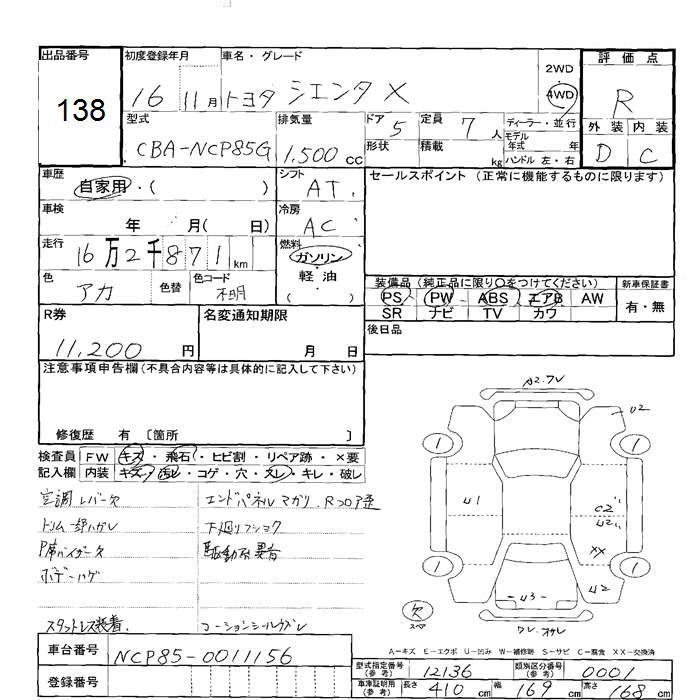 出品番号 初度登録年月 車名・グレード 評価点
138
16 11月 トヨタ シエンタ X
2WD
4WD
R
型式 排気量 ドア 定員 ディーラー・並行
CBA-NCP85G 1,500cc 5 7人 モデル年式 年
形状 積載 kg ハンドル 左・右
外装 内装
D C
車歴 シフト セールスポイント (正常に機能するものに限ります)
自家用・( ) AT
車検 冷房
年 月( 日) AC
走行 燃料
16万2千871km ガソリン
軽油
( )
色 色替 色コード
アカ 不明
装備品 (純正品に限り〇をつけてください) 新車保証書
PS PW ABS エアB AW 有・無
SR ナビ TV カワ
R券 名変通知期限 後日品
11,200円 月 日
注意事項申告欄(不具合内容等は具体的に記入して下さい)
修復歴 有 〔箇所 〕
検査員 FW キズ・飛石・ヒビ割・リペア跡・×要
記入欄 内装 キズ・汚レ・コゲ・穴・スレ・キレ・破レ
空調レバー欠 エンドパネルマガリ、Rフロア歪
下廻りフショク
駆動系異音
ボデーハゲ
スタットレス装着 コーションシールズレ
A2.7V
U2
1 1
U1
C2
U2
XX
1 1
U3 U2
欠
スペア
A-キズ E-エクボ U-凹み W-補修跡 S-サビ C-腐食 XX-交換済
車台番号 NCP85-0011156
登録番号
型式指定番号(参考) 12136 類別区分番号(参考) 0001
車庫証明用(参考) 長さ 410cm 幅 169cm 高さ 168cm